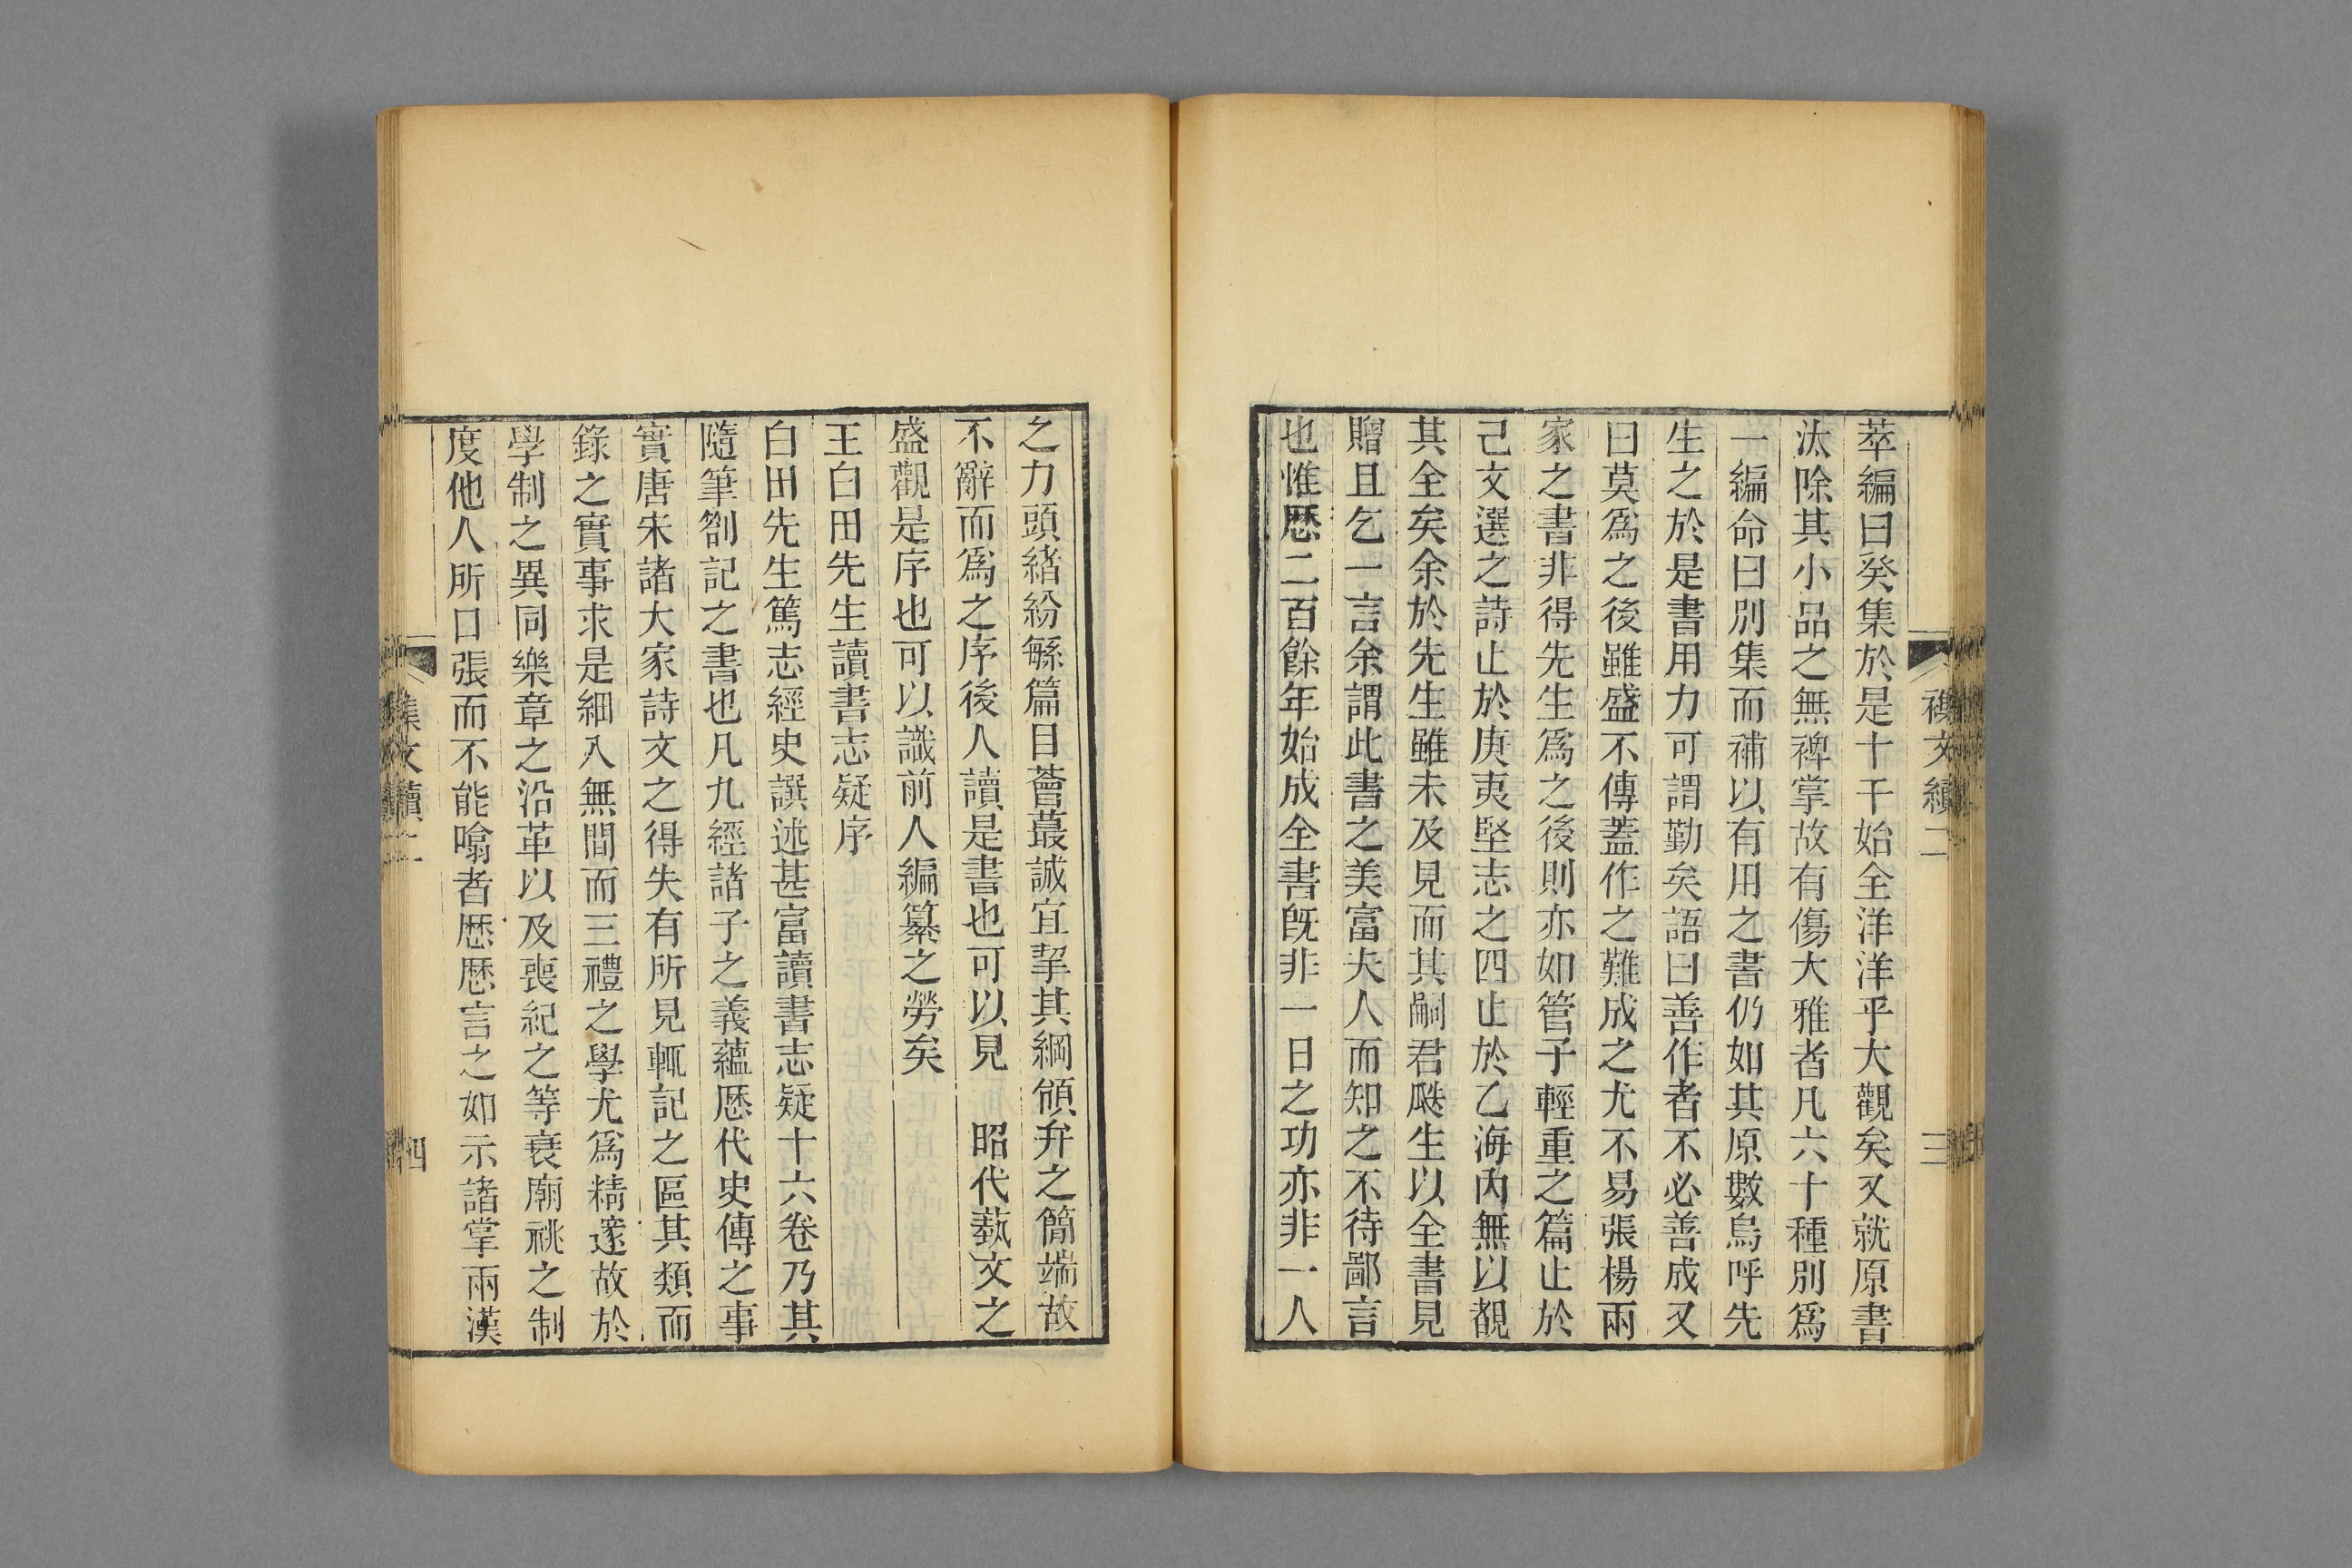 萃編曰癸集於是十干始全洋洋乎大觀矣又就原書
汰除其小品之無裨掌故有傷大雅者凡六十種別爲
一編命曰別集而補以有用之書仍如其原數烏呼先
生之於是書用力可謂勤矣語曰善作者不必善成又
曰莫爲之後雖盛不傳蓋作之難成之尤不易張楊兩
家之書非得先生爲之後則亦如管子輕重之篇止於
己文選之詩止於庚夷堅志之四止於乙海內無以覩
其全矣余於先生雖未及見而其嗣君殿生以全書見
贈且乞一言余謂此書之美富夫人而知之不待鄙言
也惟歷二百餘年始成全書旣非一日之功亦非一人
之力頭緒紛緐篇目薈蕞誠宜挈其綱領弁之簡端故
不辭而爲之序後人讀是書也可以見 昭代藝文之
盛觀是序也可以識前人編纂之勞矣
王白田先生讀書志疑序
白田先生篤志經史譔述甚富讀書志疑十六卷乃其
隨筆劄記之書也凡九經諸子之義蘊歷代史傳之事
實唐宋諸大家詩文之得失有所見輒記之區其類而
錄之實事求是細入無間而三禮之學尤爲精邃故於
學制之異同樂章之沿革以及喪紀之等衰廟祧之制
度他人所口張而不能噏者歷歷言之如示諸掌兩漢
文續二
三
文續二
四